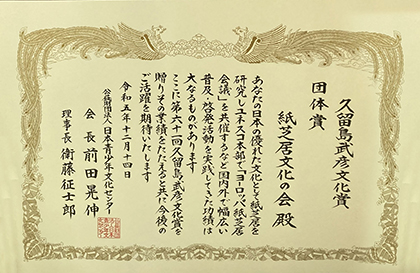 久留島武彦文化賞
団体賞
紙芝居文化の会 殿
あなたの日本の優れた文化として紙芝居を
研究しユネスコ本部で「ヨーロッパ紙芝居
会議」を共催するなど国内外で幅広い
普及・啓発活動を実践してきた功績は
大なるものがあります
ここに第六十二回久留島武彦文化賞を
贈りその業績をたたえると共に今後の
ご活躍を期待いたします
令和五年十二月十四日
公益財団法人 日本青少年文化センター
会長 前田晃伸
理事長 衛藤征士郎